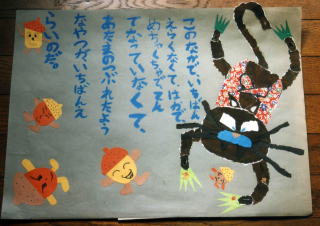 このなかで、いちばん
えらくなくて、ばかで、
めちゃくちゃで、てん
でなっていなくて、
あたまのつぶれたよう
なやつが、いちばんえ
らいのだ。